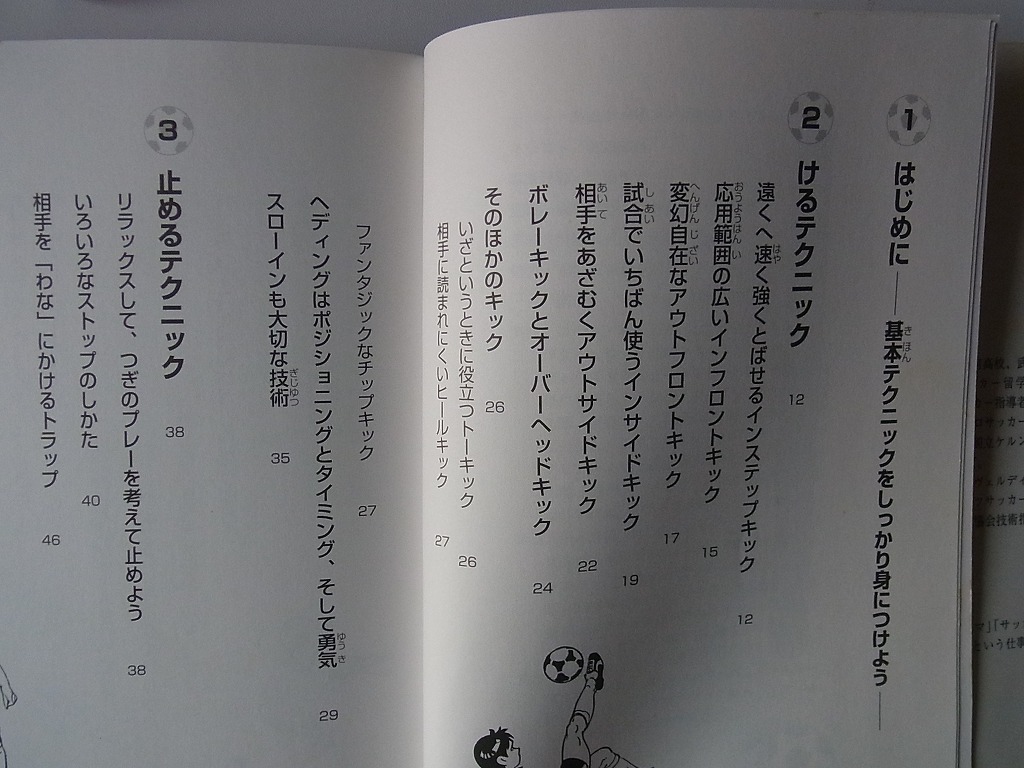 1 はじめに――基本テクニックをしっかり身につけよう――
2 けるテクニック 12
遠くへ速く強くとばせるインステップキック 12
応用範囲の広いインフロントキック 15
変幻自在なアウトフロントキック 17
試合でいちばん使うインサイドキック 19
相手をあざむくアウトサイドキック 22
ボレーキックとオーバーヘッドキック 24
そのほかのキック 26
いざというときに役立つトーキック 26
相手に読まれにくいヒールキック 27
ファンタジックなチップキック 27
ヘディングはポジショニングとタイミング、そして勇気 29
スローインも大切な技術 35
3 止めるテクニック 38
リラックスして、つぎのプレーを考えて止めよう 38
いろいろなストップのしかた 40
相手を「わな」にかけるトラップ 46